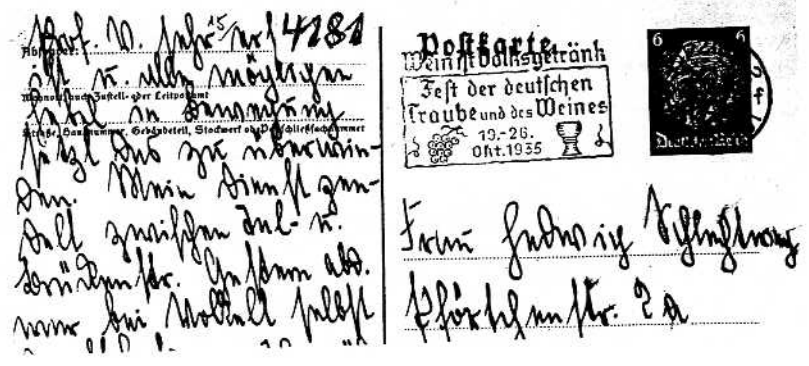 Prof. V. sehr 15 4181
Absender:
ist u. alle möglichen
Wohnort, auch Zustell- oder Leitpostamt
Hebel in Bewegung
Straße, Hausnummer, Gebäudeteil, Stockwerk od. Postschließfachnummer
setzt das zu überwin-
den. Mein Dienst pen-
delt zwischen Jul.- u.
Brückenstr. Gestern abd.
war bei selbst
Postkarte
Wein ist Volksgetränk
Fest der deutschen
Traube und des Weines
19.-26.
Okt. 1935
6 6
Deutsches Reich
Frau Hedwig
Pförtchenstr. 2a